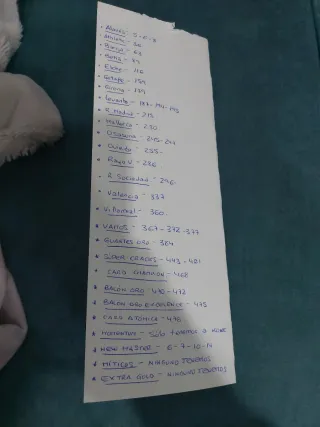 • Alavés - 5-6-8
• Athletic - 36
• Barça - 63
• Betis - 83
• Elche - 116
• Getafe - 159
• Girona - 179
• Levante - 187-194-195
• R. Madrid - 215
• Mallorca - 230
• Osasuna - 245-247
• Oviedo - 255
• Rayo V. - 286
• R. Sociedad - 296
• Valencia - 337
• Villarreal - 360
• VARIOS - 367-372-377
• GUANTES ORO - 384
• SUPER CRACKS - 443-451
• CARD CHAMPION - 468
• BALON ORO - 470-472
• BALON ORO EXCELENCE - 475
• CARD ATOMICA - 476
• MOMENTUM - SÓLO TENEMOS A
• NEW MASTER - 6-7-10-14
• MÍTICOS - NINGUNO TENEMOS
• EXTRA GOLD - NINGUNO TENEMOS